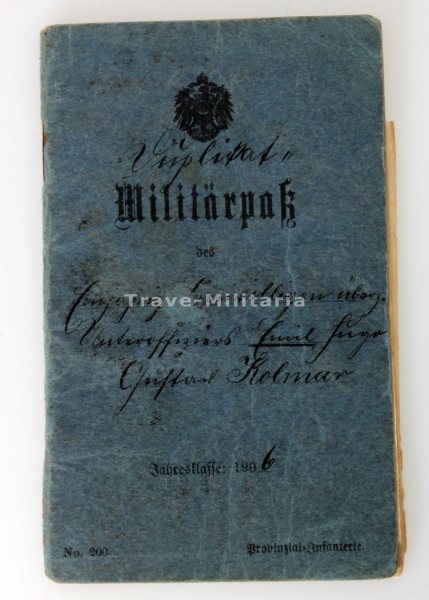 Duplikat
Militärpaß
des
Einjährig Freiwilligen überz.
Trave-Militaria
Unteroffiziers Emil Hugo
Gustav Kolmar
Jahresklasse: 1906
No. 200.
Provinzial-Infanterie